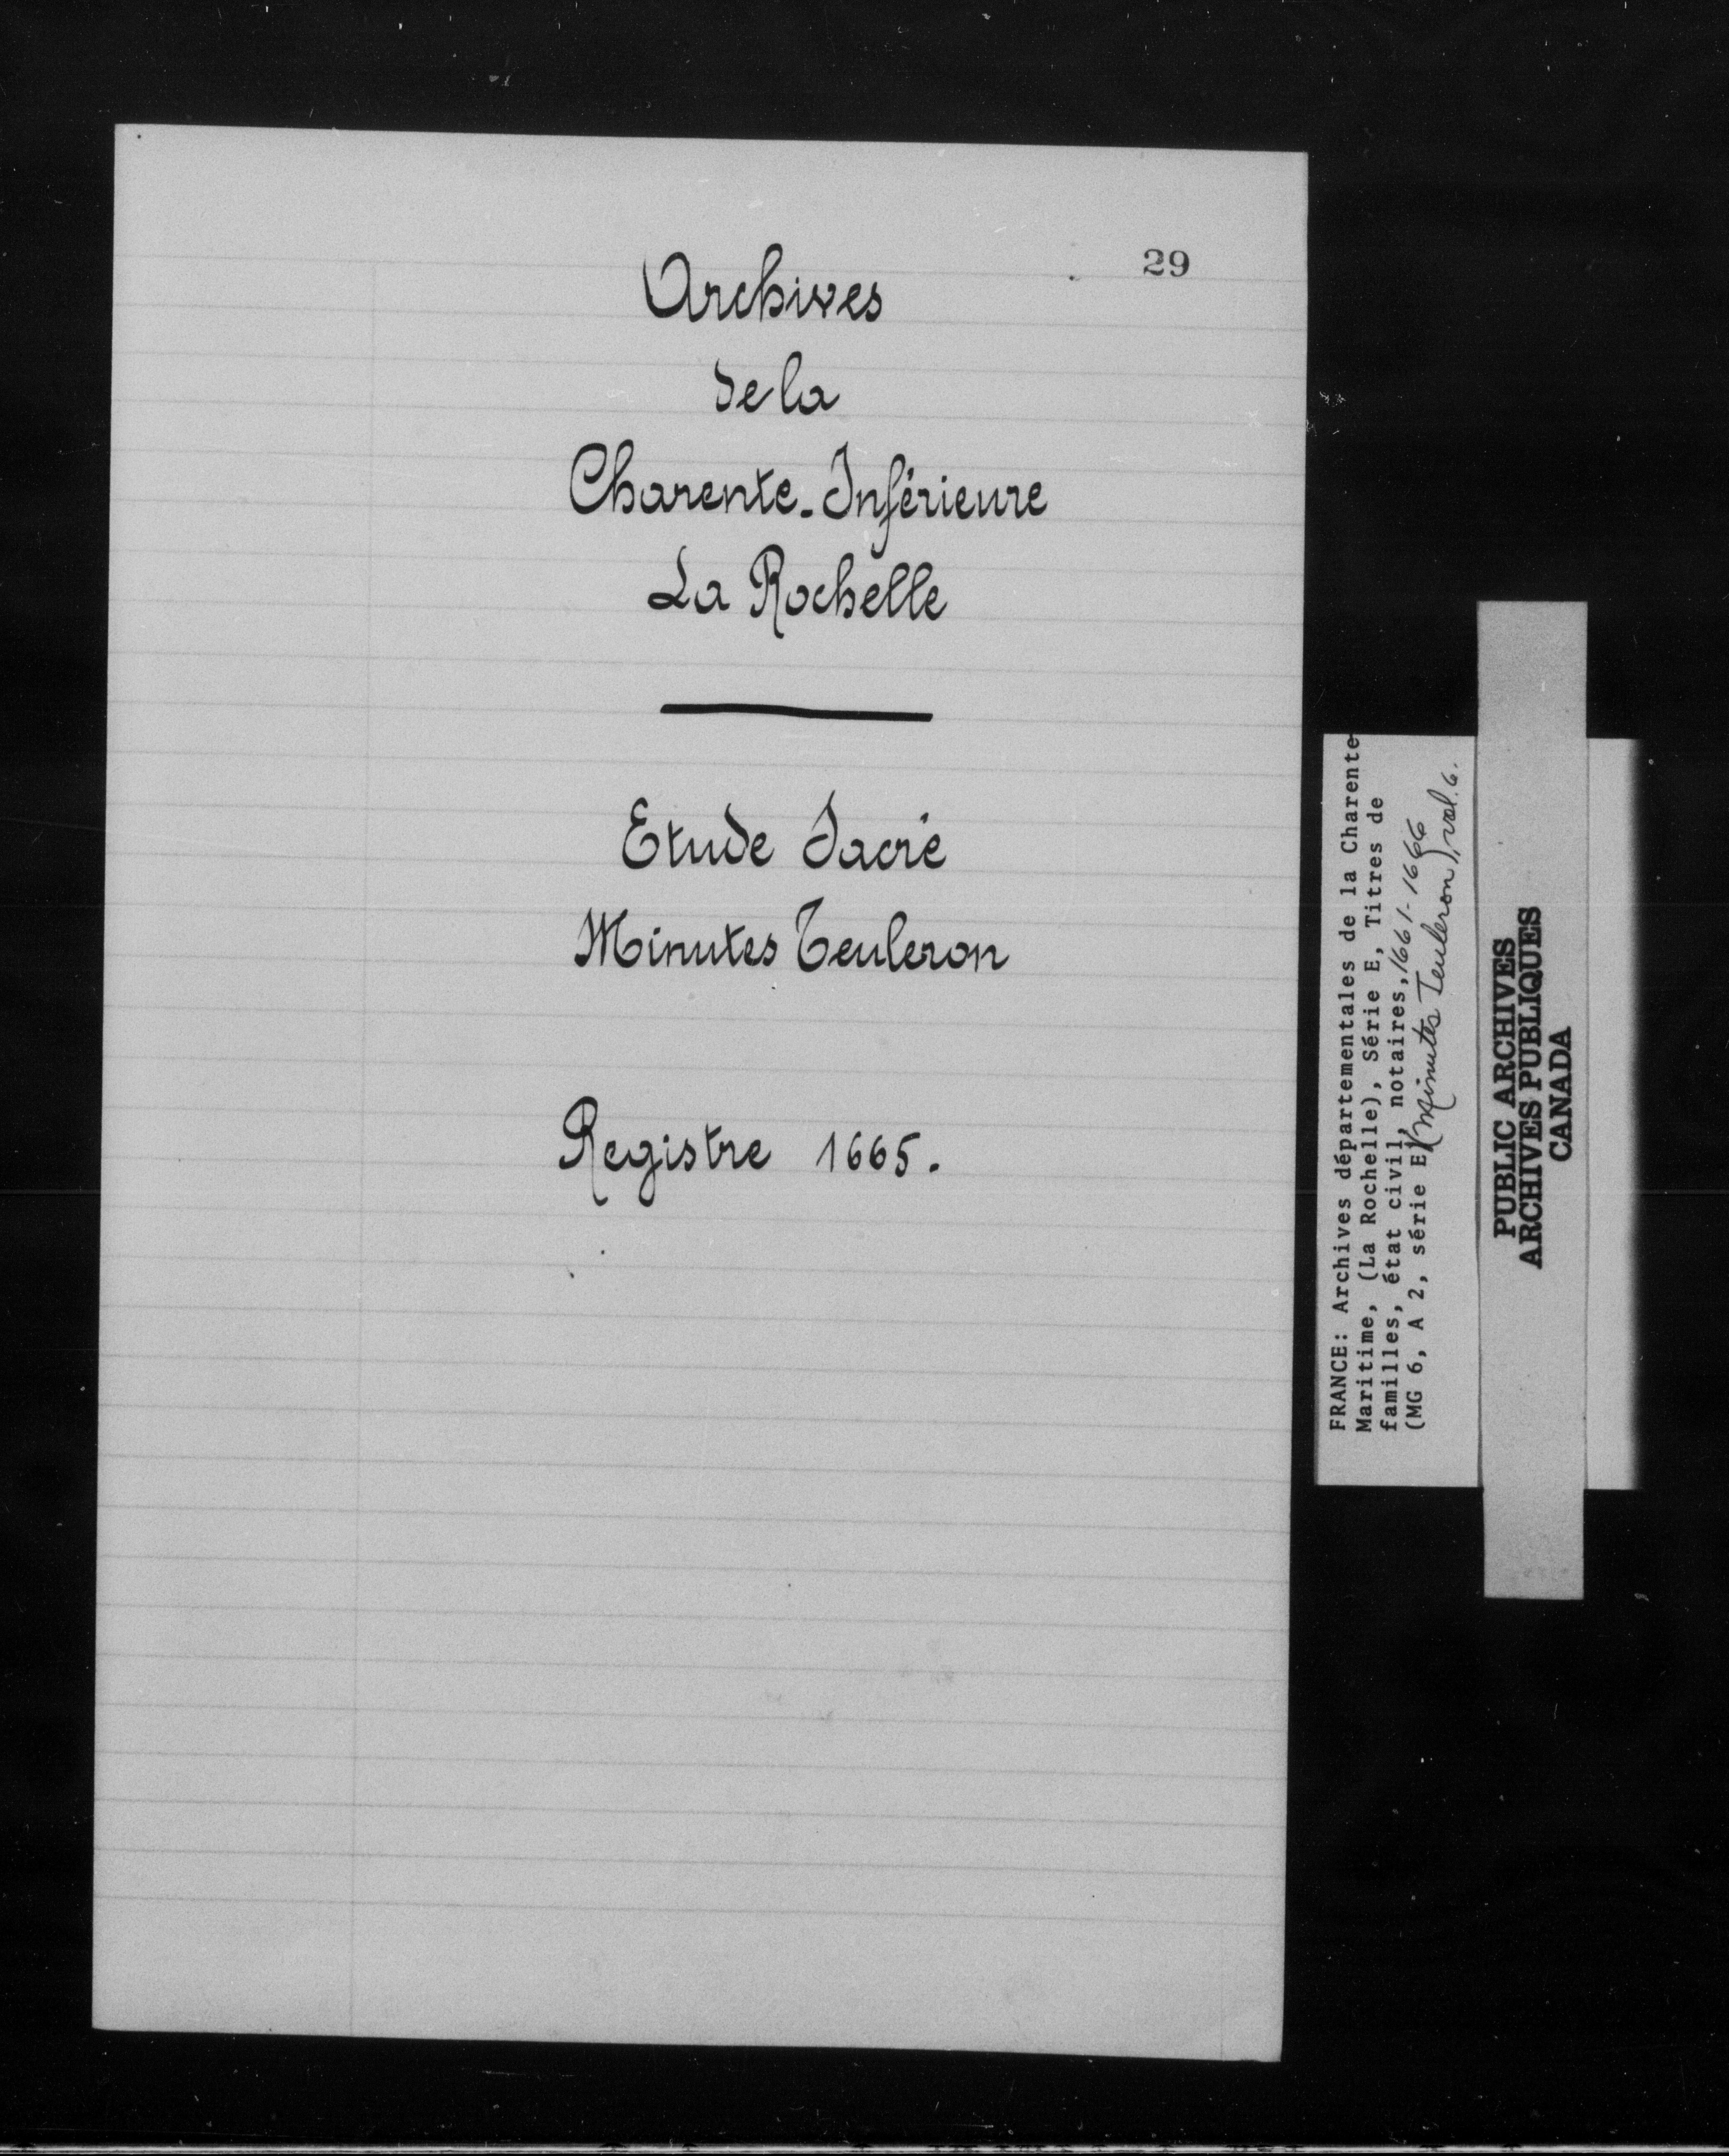 29
Archives
de la
Charente-Inférieure
La Rochelle
Etude
Minutes Teuleron
Registre 1665.
FRANCE: Archives départementales de la Charente
Maritime, (La Rochelle), Série E, Titres de
familles, état civil, notaires, 1661-1666
(MG 6, A 2, série E) (Minutes Teuleron), vol. 6.
PUBLIC ARCHIVES
ARCHIVES PUBLIQUES
CANADA